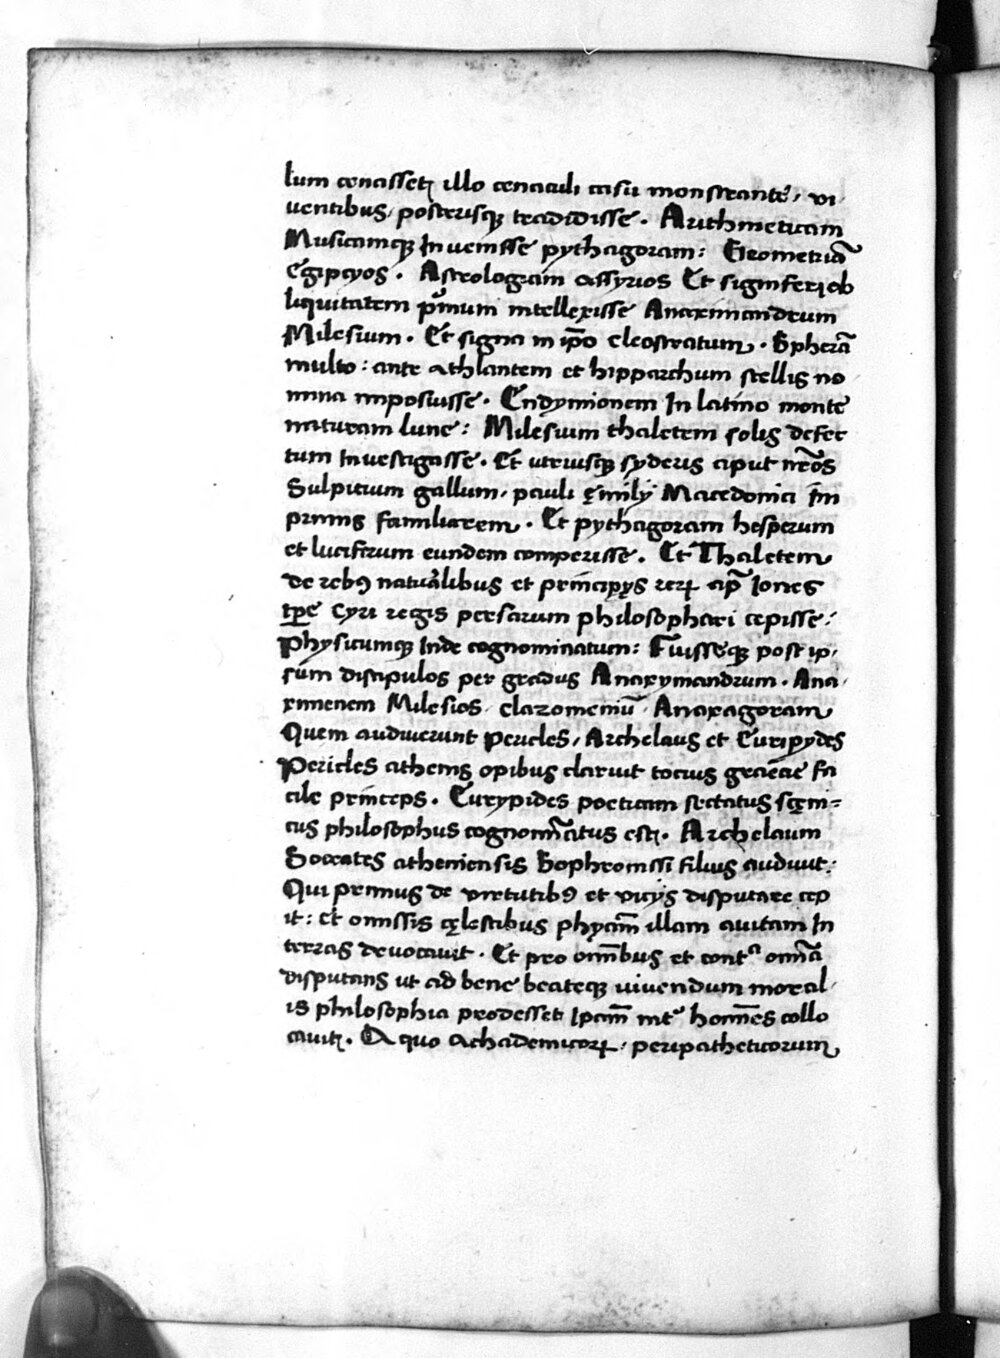 lum cenasset illo cenaculi casu monstrante, vi
uentibus, posterisq; tradidisse. Arithmeticam
Musicamq; Inuenisse pythagoram: Geometriā
Egipcyos. Astrologiam assyrios Et signiferi ob
liquitatem pͥmum intellexisse Anaximandrum
Milesium. Et signa in ip̄o cleostratum. Spherā
multo: ante athlantem et hipparchum stellis no
mina imposuisse. Endymionem In latmo monte
naturam lune: Milesium thaletem solis defec
tum Inuestigasse. Et utriusq; syderis aput nr̄os
Sulpitium gallum, pauli ęmily Macedonia Im
primis familiarem. Et pythagoram hesperum
et luciferum eundem comperisse. Et Thaletem
de rebꝯ naturalibus et principys reꝝ ap̄ Iones
tp̄e Cyri regis persarum philosophari cepisse:
Physicumq; Inde cognominatum: Fuisseq; post ip
sum discipulos per gradus Anaxymandrum. Ana
ximenem Milesios clazomeniū Anaxagoram
Quem audiuerunt Pericles, Archelaus et Euripydes
Pericles athenis opibus claruit tocius graecie fa
cile princeps. Eurypides poeticam sectatus scęni=
cus philosophus cognoīatus est. Archelaum
Socrates atheniensis Sophronissi filius audiuit:
Qui primus de virtutibꝯ et vicys disputare cep
it: et omissis cęlestibus phycam̄ illam auitam In
terras deuocauit. Et pro om̄ibus et contᵃ om̄ia
disputans ut ad bene beateq; uiuendum moral
is philosophia prodesset Ipam̄ intͤ hom̄es collo
cauit. A quo achademicoꝝ, peripatheticorum